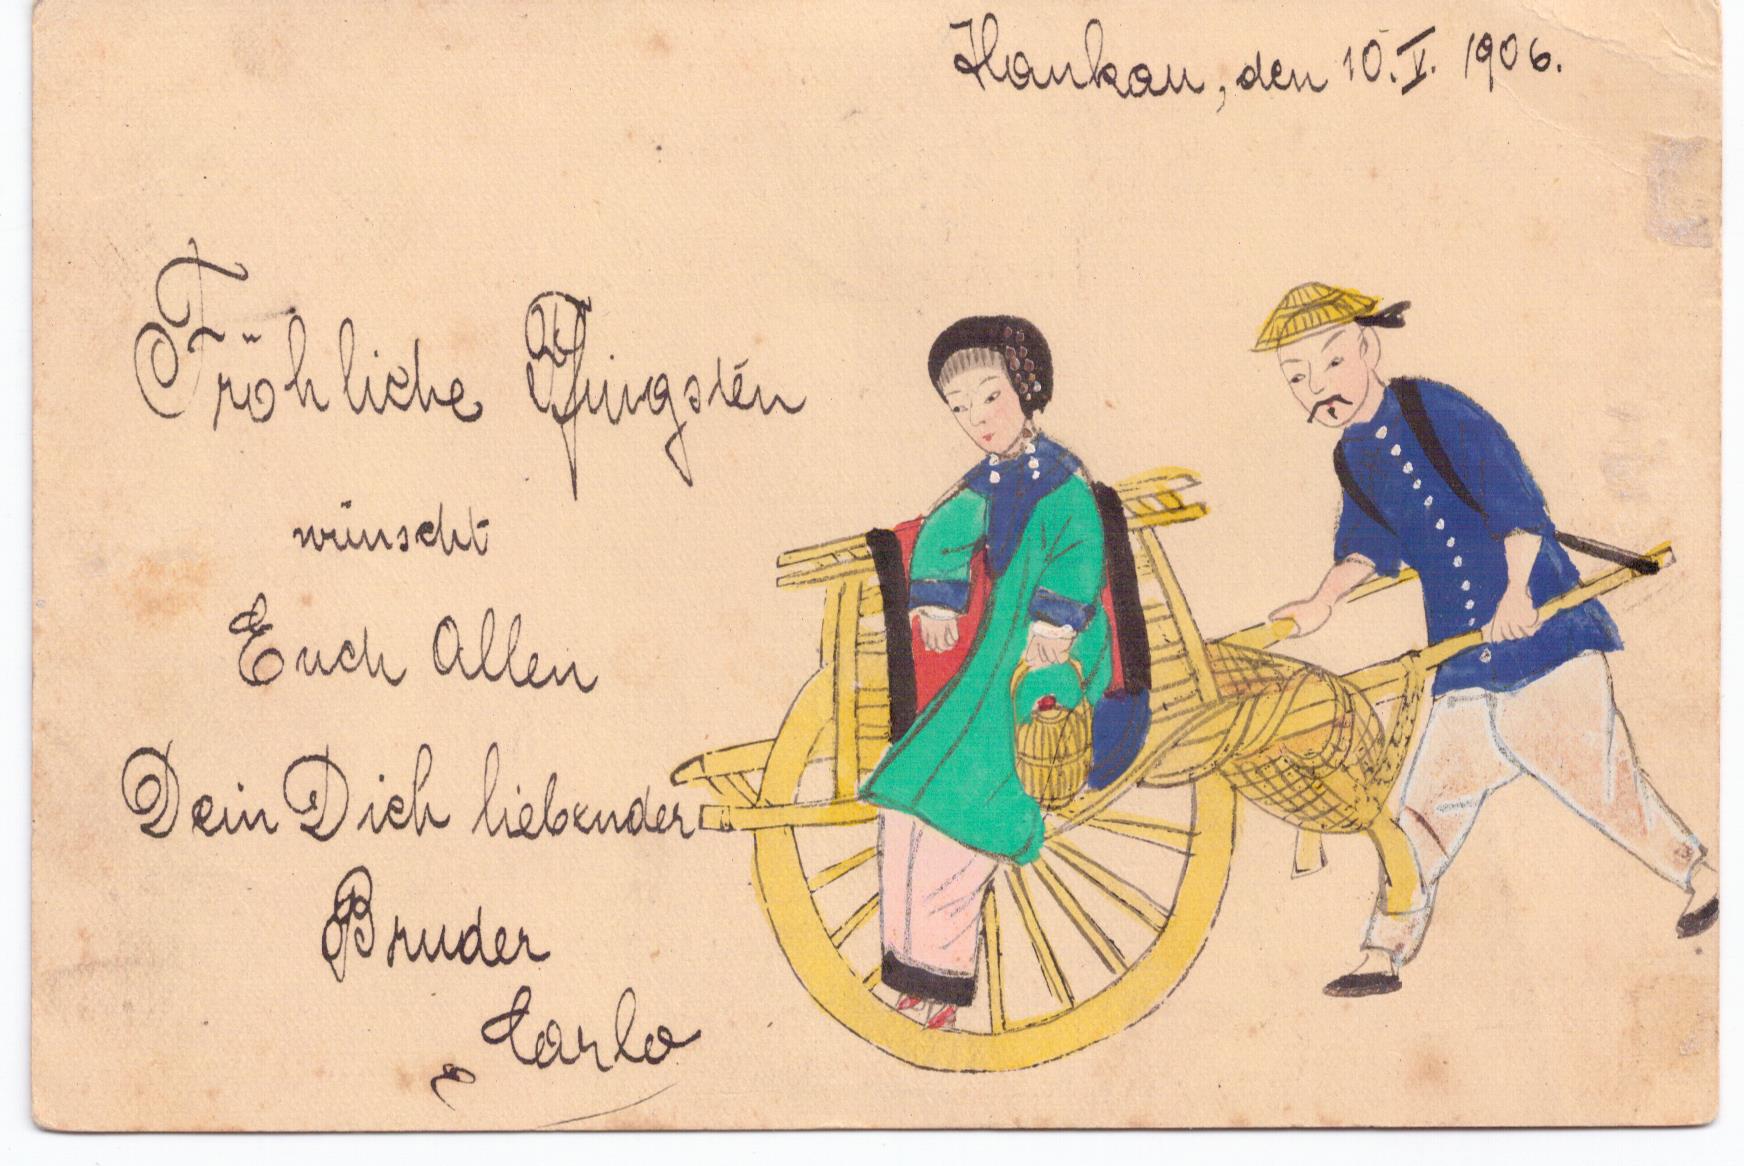 Hankau, den 10. V. 1906.
Fröhliche Pfingsten
wünscht
Euch Allen
Dein Dich liebender
Bruder
Carlo